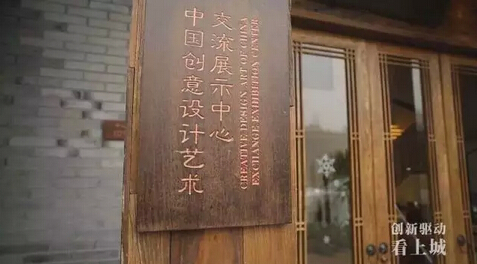 中国创意设计艺术
交流展示中心
CREATIVE DESIGN
EXCHANGE EXHIBITION CENTER
创新驱动
看上城